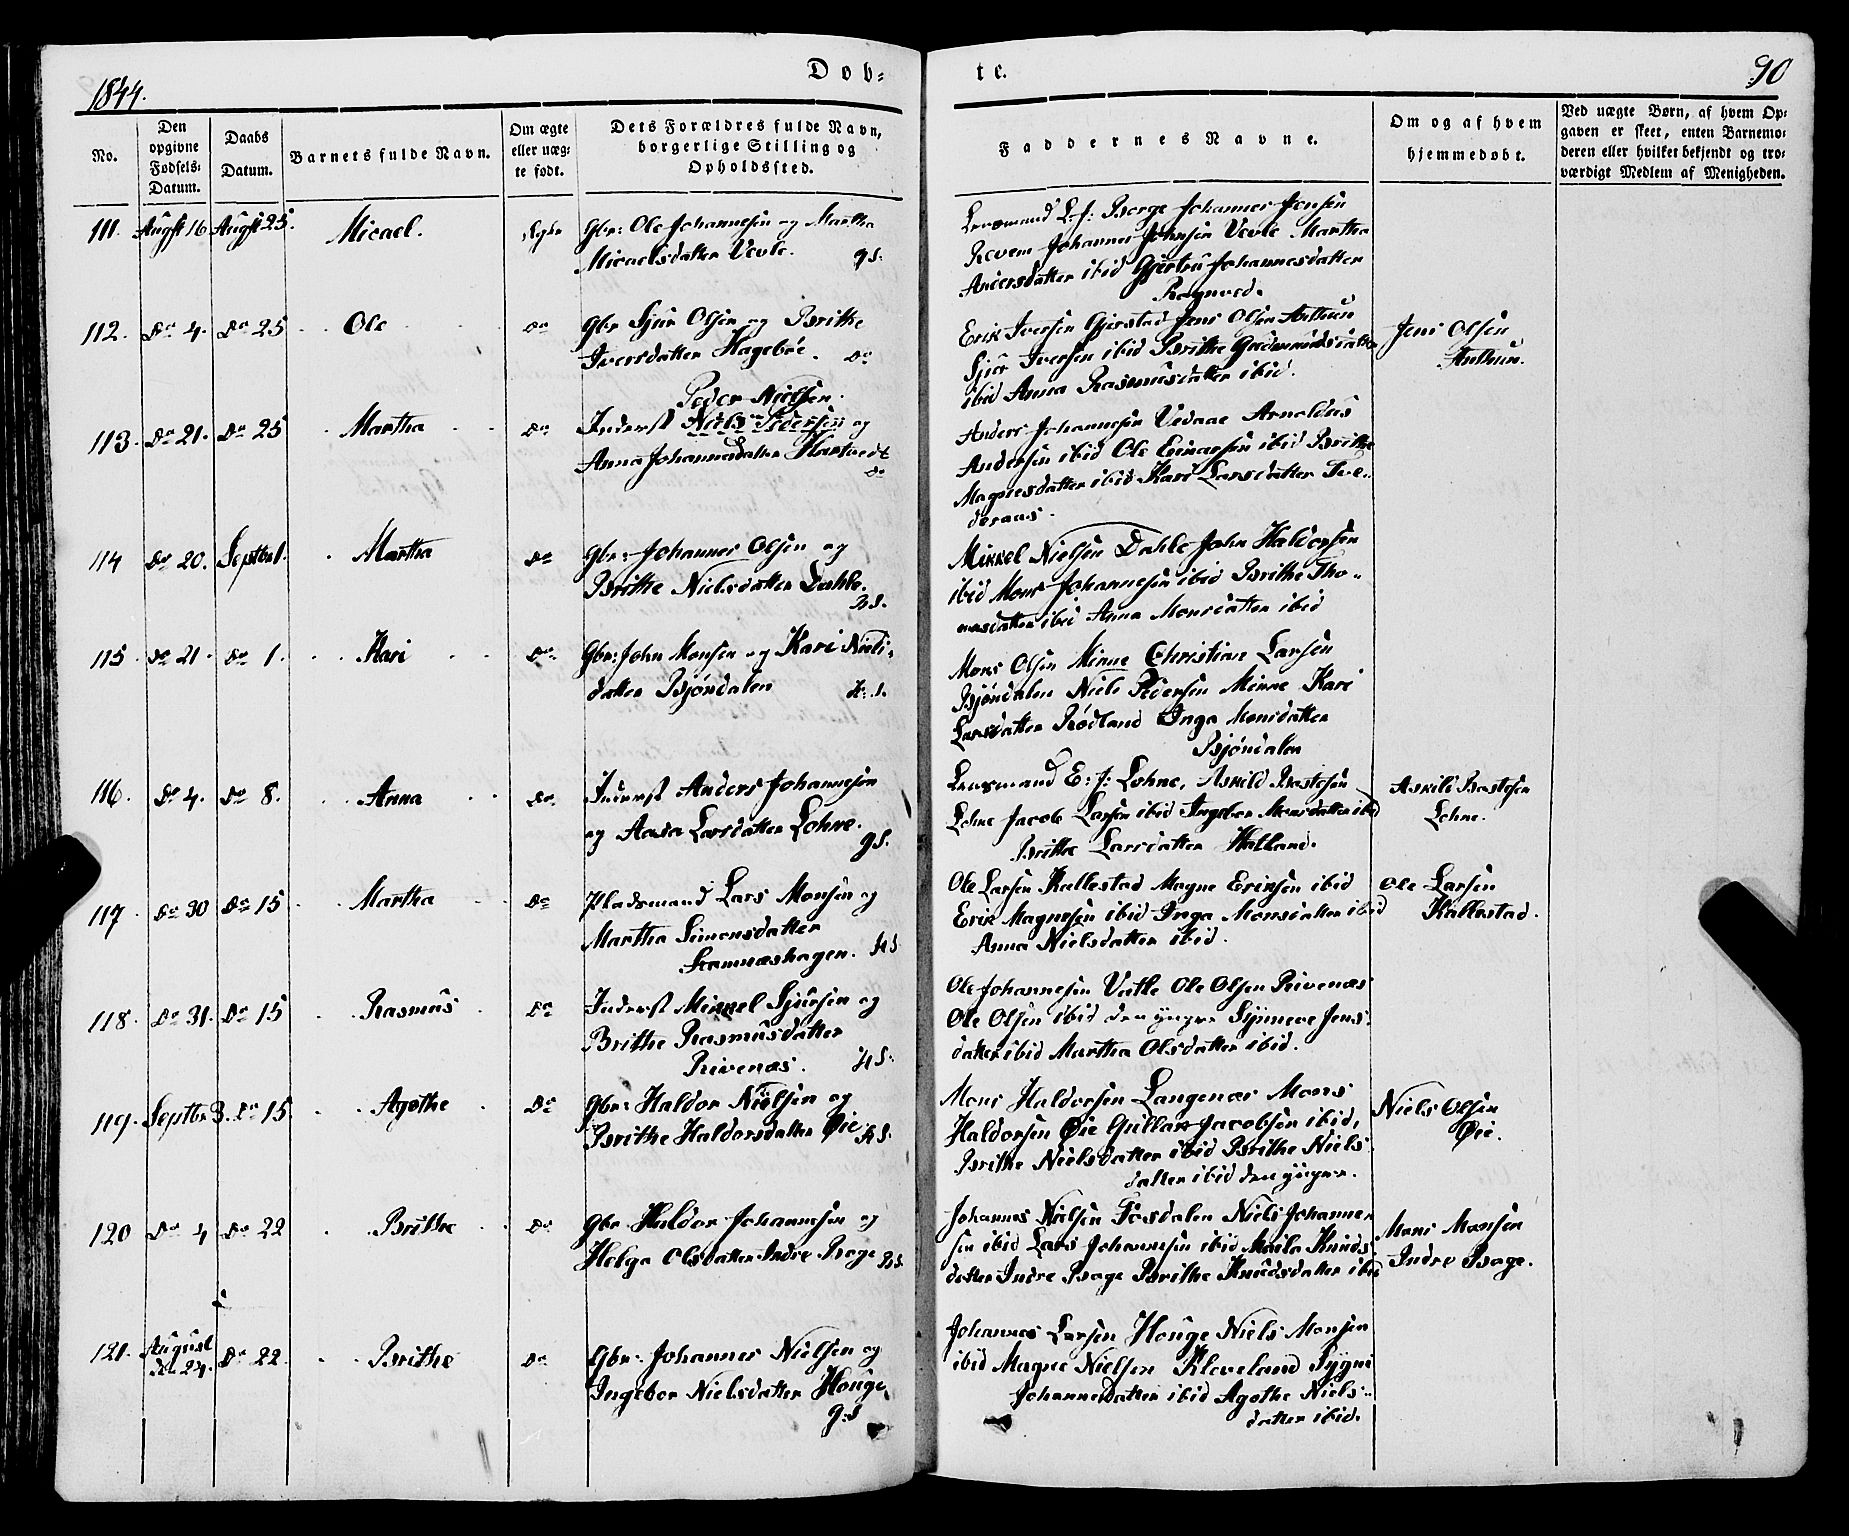 1844.
Døb-
te.
90
No.
Den
opgivne
Fødsels-
Datum.
Daabs
Datum.
Barnets fulde Navn.
Om ægte
eller uæg-
te født.
Dets Forældres fulde Navn,
borgerlige Stilling og
Opholdssted.
Faddernes Navne.
Om og af hvem
hjemmedøbt.
Ved uægte Børn, af hvem Op-
gaven er skeet, enten Barnemo-
deren eller hvilket bekjendt og tro-
værdigt Medlem af Menigheden.
111. Augst 16 August 25. Micael. Ægte
Gbr: Ole Johannesen og Martha
Micaelsdatter Vevle. gS.
Lensmand Berge Johannes Jensen
Reven Johannes Johnsen Vevle Martha
Andersdatter ibid Gjertru Johannesdatter
112. do 4. do 25 Ole do
Gbr Sjur Olsen og Brithe
Iversdatter Hagebøe. do
Erik Iversen Gjerstad Jens Olsen Anthun
Sjur Iversen ibid Brithe Gudmundsdatter
ibid Anna Rasmusdatter ibid.
Jens Olsen
Anthun.
113. do 21. do 25 Martha do
Peder Nielsen.
Inderst Niels Pedersen og
Anna Johannesdatter Hartvedt
do
Anders Johannesen Vedaae Arnoldus
Andersen ibid Ole Einarsen ibid Brithe
Magnesdatter ibid Kari Larsdatter Tve-
deraas.
114 do 20. Septbr 1. Martha do
Gbr: Johannes Olsen og
Brithe Nielsdatter Dahle.
BS.
Mikkel Nielsen Dahle John Haldorsen
ibid Mons Johannesen ibid Brithe Tho-
masdatter ibid Anna Monsdatter ibid
115 do 21. do 1. Kari do
Gbr: John Monsen og Kari Niels-
datter Bjøndalen H.S.
Mons Olsen Minne Christian Larsen
Bjøndalen Niels Pedersen Minne Kari
Larsdatter Rødland Inga Monsdatter
Bjøndalen
116. do 4. do 8. Anna do
Inderst Anders Johannesen
og Aasa Larsdatter Lohne.
gS.
Lensmand E: J: Lohne, Askild Bastesen
Lohne Jacob Larsen ibid Ingebor Monsdatter ibid
Brithe Larsdatter Halland.
Askild Bastesen
Lohne.
117. do 30 do 15 Martha do
Pladsmand Lars Monsen og
Martha Simonsdatter
Stamneshagen. HS
Ole Larsen Kallestad Magne Eriksen ibid
Erik Magnesen ibid Inga Monsdatter ibid
Anna Nielsdatter ibid.
Ole Larsen
Kallestad.
118. do 31. do 15 Rasmus do
Inderst Mikkel Sjursen og
Brithe Rasmusdatter
Rivenæs. HS.
Ole Johannesen Vetle Ole Olsen Rivenæs
Ole Olsen ibid den yngre Synneve Jens-
datter ibid Martha Olsdatter ibid.
119. Septbr 3. do 15 Agothe do
Gbr: Haldor Nielsen og
Brithe Haldorsdatter Øie HS.
Mons Haldorsen Langenæs Mons
Haldorsen Øie Gullak Jacobsen ibid,
Brithe Nielsdatter ibid Brithe Niels
datter ibid den yngre.
Niels Olsen
Øie.
120 do 4 do 22 Brithe do
Gbr Haldor Johannesen og
Helga Olsdatter Indre Boge BS.
Johannes Nielsen Fosdalen Niels Johannes
sen ibid Lars Johannesen ibid Marta Knuds
datter Indre Boge Brithe Knudsdatter ibid
Mons Monsen
Indre Boge.
121. August
do 24. do 22. Brithe do
Gbr: Johannes Nielsen og
Ingebor Nielsdatter Houge
g:S
Johannes Larsen Houge Niels Monsen
ibid Magne Nielsen Kleveland Sygni
Johannesdatter ibid Agothe Niels-
datter ibid.